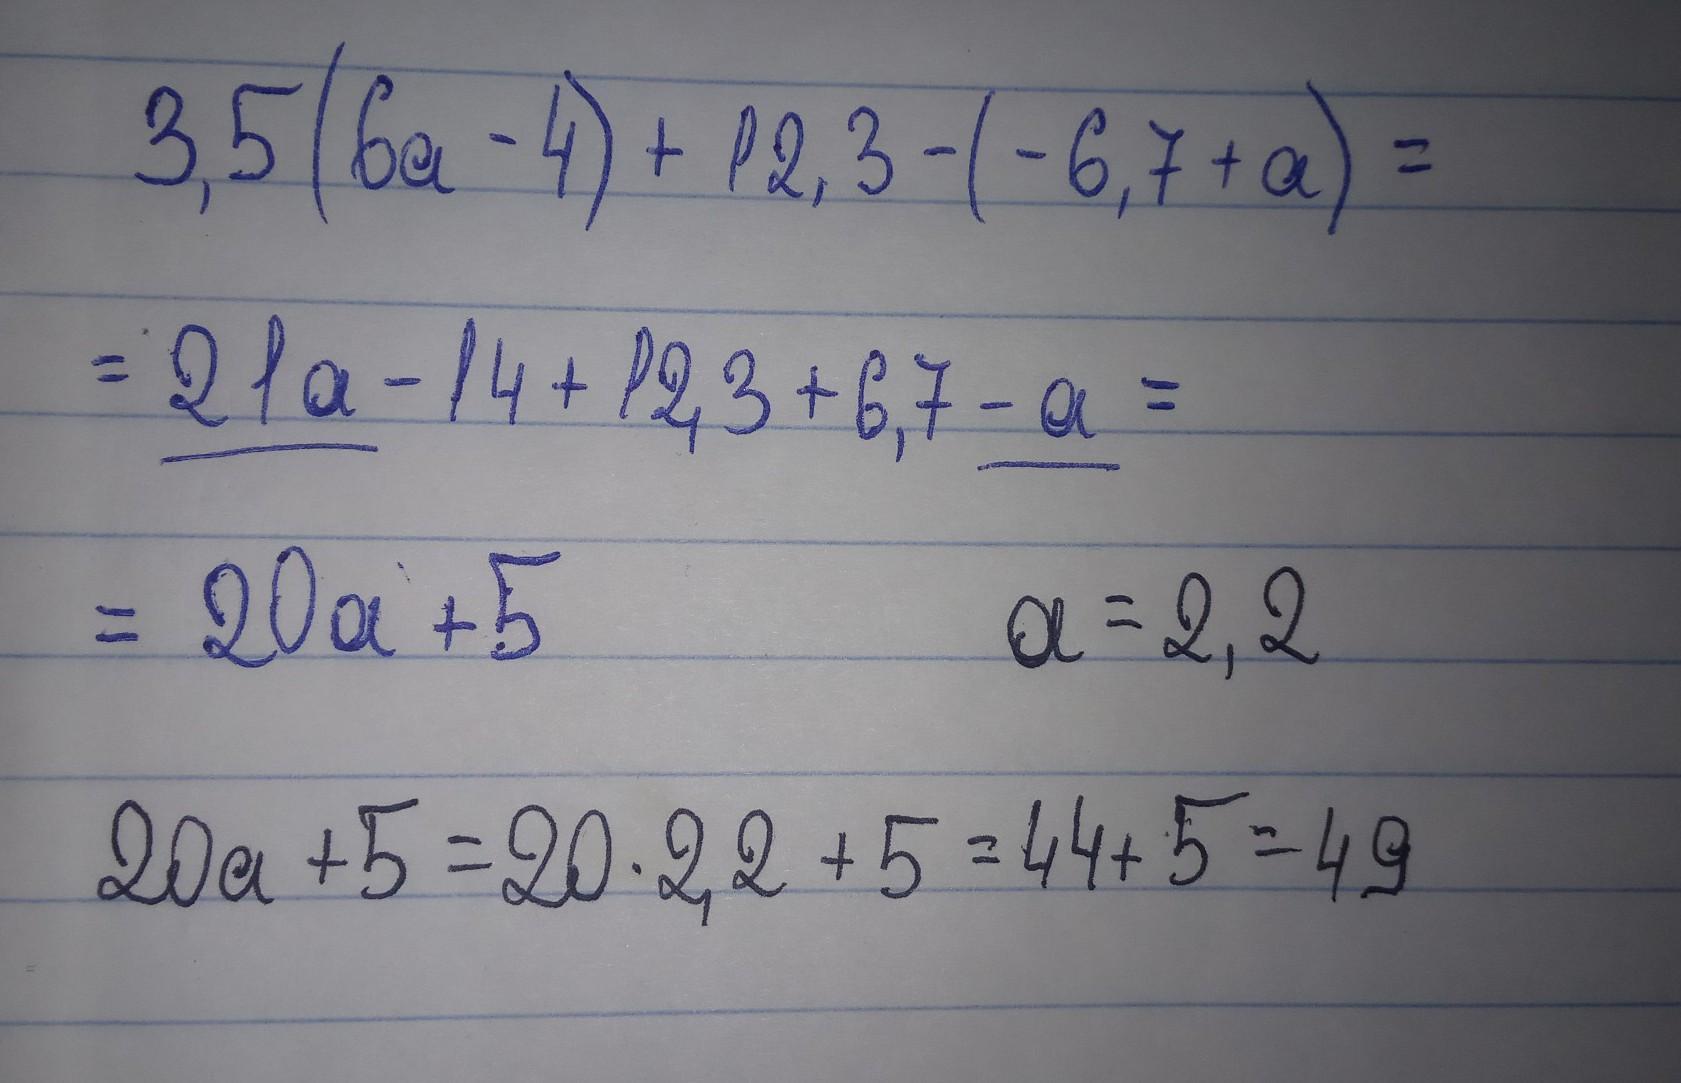 3,5(6a - 4) + 12,3 - (-6,7 + a) =
= 21a - 14 + 12,3 + 6,7 - a =
= 20a + 5 a = 2,2
20a + 5 = 20 · 2,2 + 5 = 44 + 5 = 49